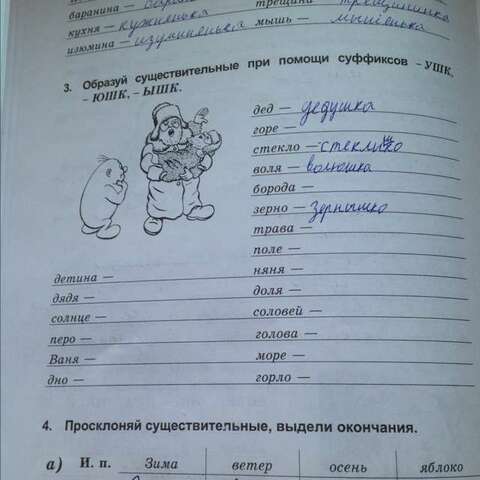 баранина —
кухня — кухненька трещина —
изюмина — изюминенька мышь — мышенька
3. Образуй существительные при помощи суффиксов – УШК,
– ЮШК, – ЫШК.
дед — дедушка
горе —
стекло —
воля — волюшка
борода —
зерно — зернышко
трава —
поле —
детина — няня —
дядя — доля —
солнце — соловей —
перо — голова —
Ваня — море —
дно — горло —
4. Просклоняй существительные, выдели окончания.
а) И. п. Зима ветер осень яблоко